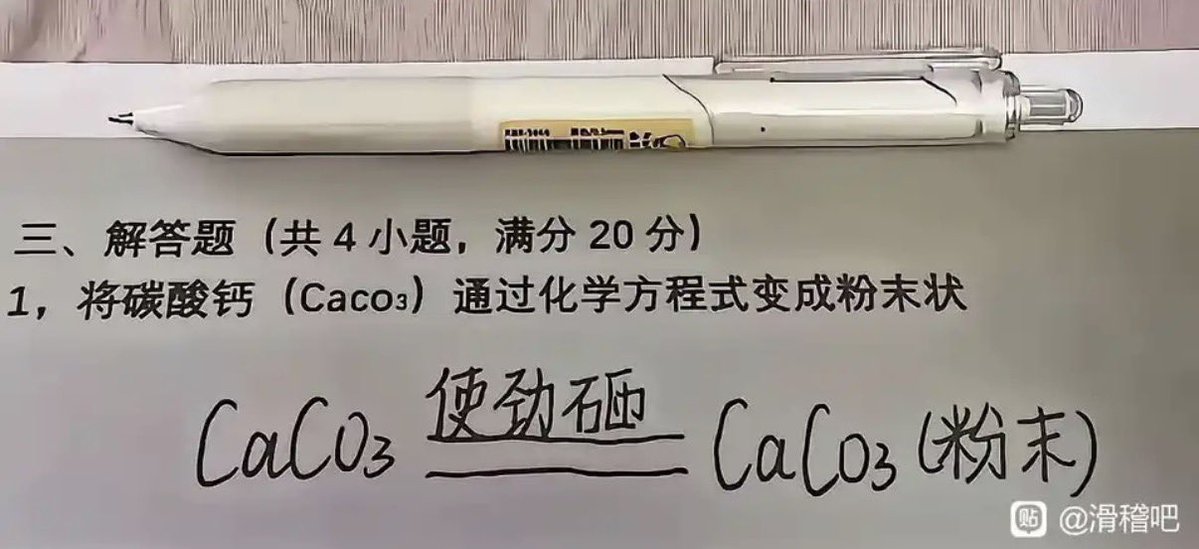 三、解答题（共 4 小题，满分 20 分）
1，将碳酸钙（Caco₃）通过化学方程式变成粉末状
使劲砸
CaCO₃ ═══ CaCO₃ (粉末)
贴 @滑稽吧